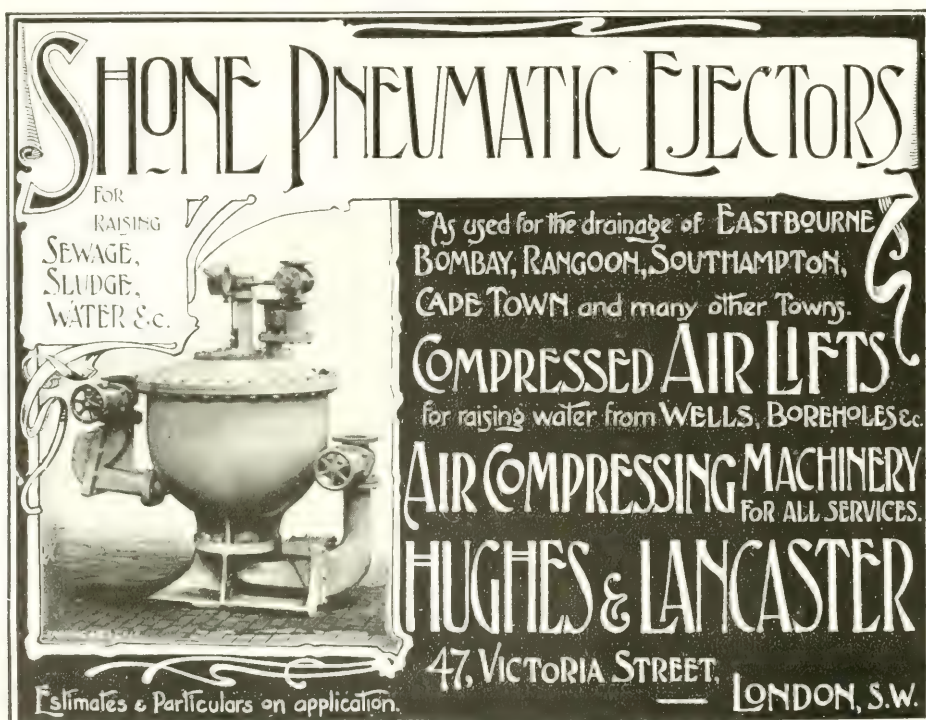 SHONE PNEUMATIC EJECTORS
FOR
RAISING
SEWAGE,
SLUDGE,
WATER &c.
As used for the drainage of EASTBOURNE
BOMBAY, RANGOON, SOUTHAMPTON,
CAPE TOWN and many other Towns.
COMPRESSED AIR LIFTS
for raising water from WELLS, BOREHOLES &c.
AIR COMPRESSING MACHINERY
FOR ALL SERVICES.
HUGHES & LANCASTER
47, VICTORIA STREET,
LONDON, S.W.
Estimates & Particulars on application.